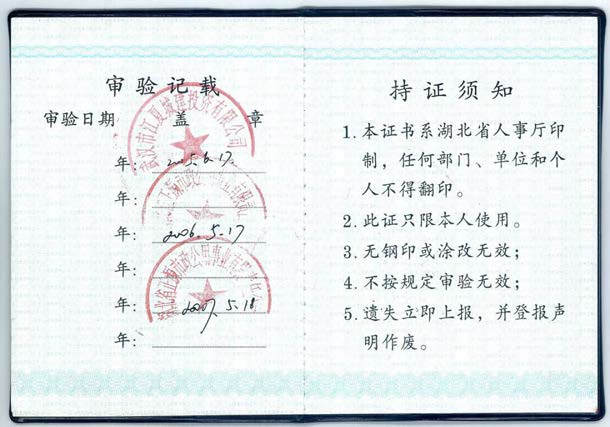 审验记载
审验日期 盖 章
武汉市江夏城建投资有限公司
年: 2005.6.17
年:
年: 2006.5.17
年:
年: 2007.5.18
年:
持证须知
1.本证书系湖北省人事厅印
制，任何部门、单位和个
人不得翻印。
2.此证只限本人使用。
3.无钢印或涂改无效；
4.不按规定审验无效；
5.遗失立即上报，并登报声
明作废。